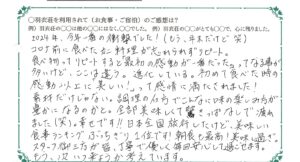 〇羽衣荘を利用されて（お食事・ご宿泊）のご感想は？
例）羽衣荘の〇〇は他の〇〇にはなく、〇〇でした。 例）羽衣荘の〇〇がとても〇〇で、心に残りました。
2024年 今年一番の衝撃でした！（もう、年末だけど笑）
コロナ前に食べたお料理が忘れられずリピート。
食べ物ってリピートすると最初の感動が一番だった…ってなる事が
多いけど、ここは違う。進化している。初めて食べた時の
感動以上に美しい！…って感情に満たされました！
素材だけじゃない。調理の仕方でこんなに味の楽しみ方が
豊かになるのかと。全部が美味しくて
ました（笑）。幸せです!! 日本全国旅行したけど、美味しい
食事ランキングぶっちぎり1位です！朝食も最高！美味し過ぎ。
スタッフ
もう、次いつ来ようか考えています。